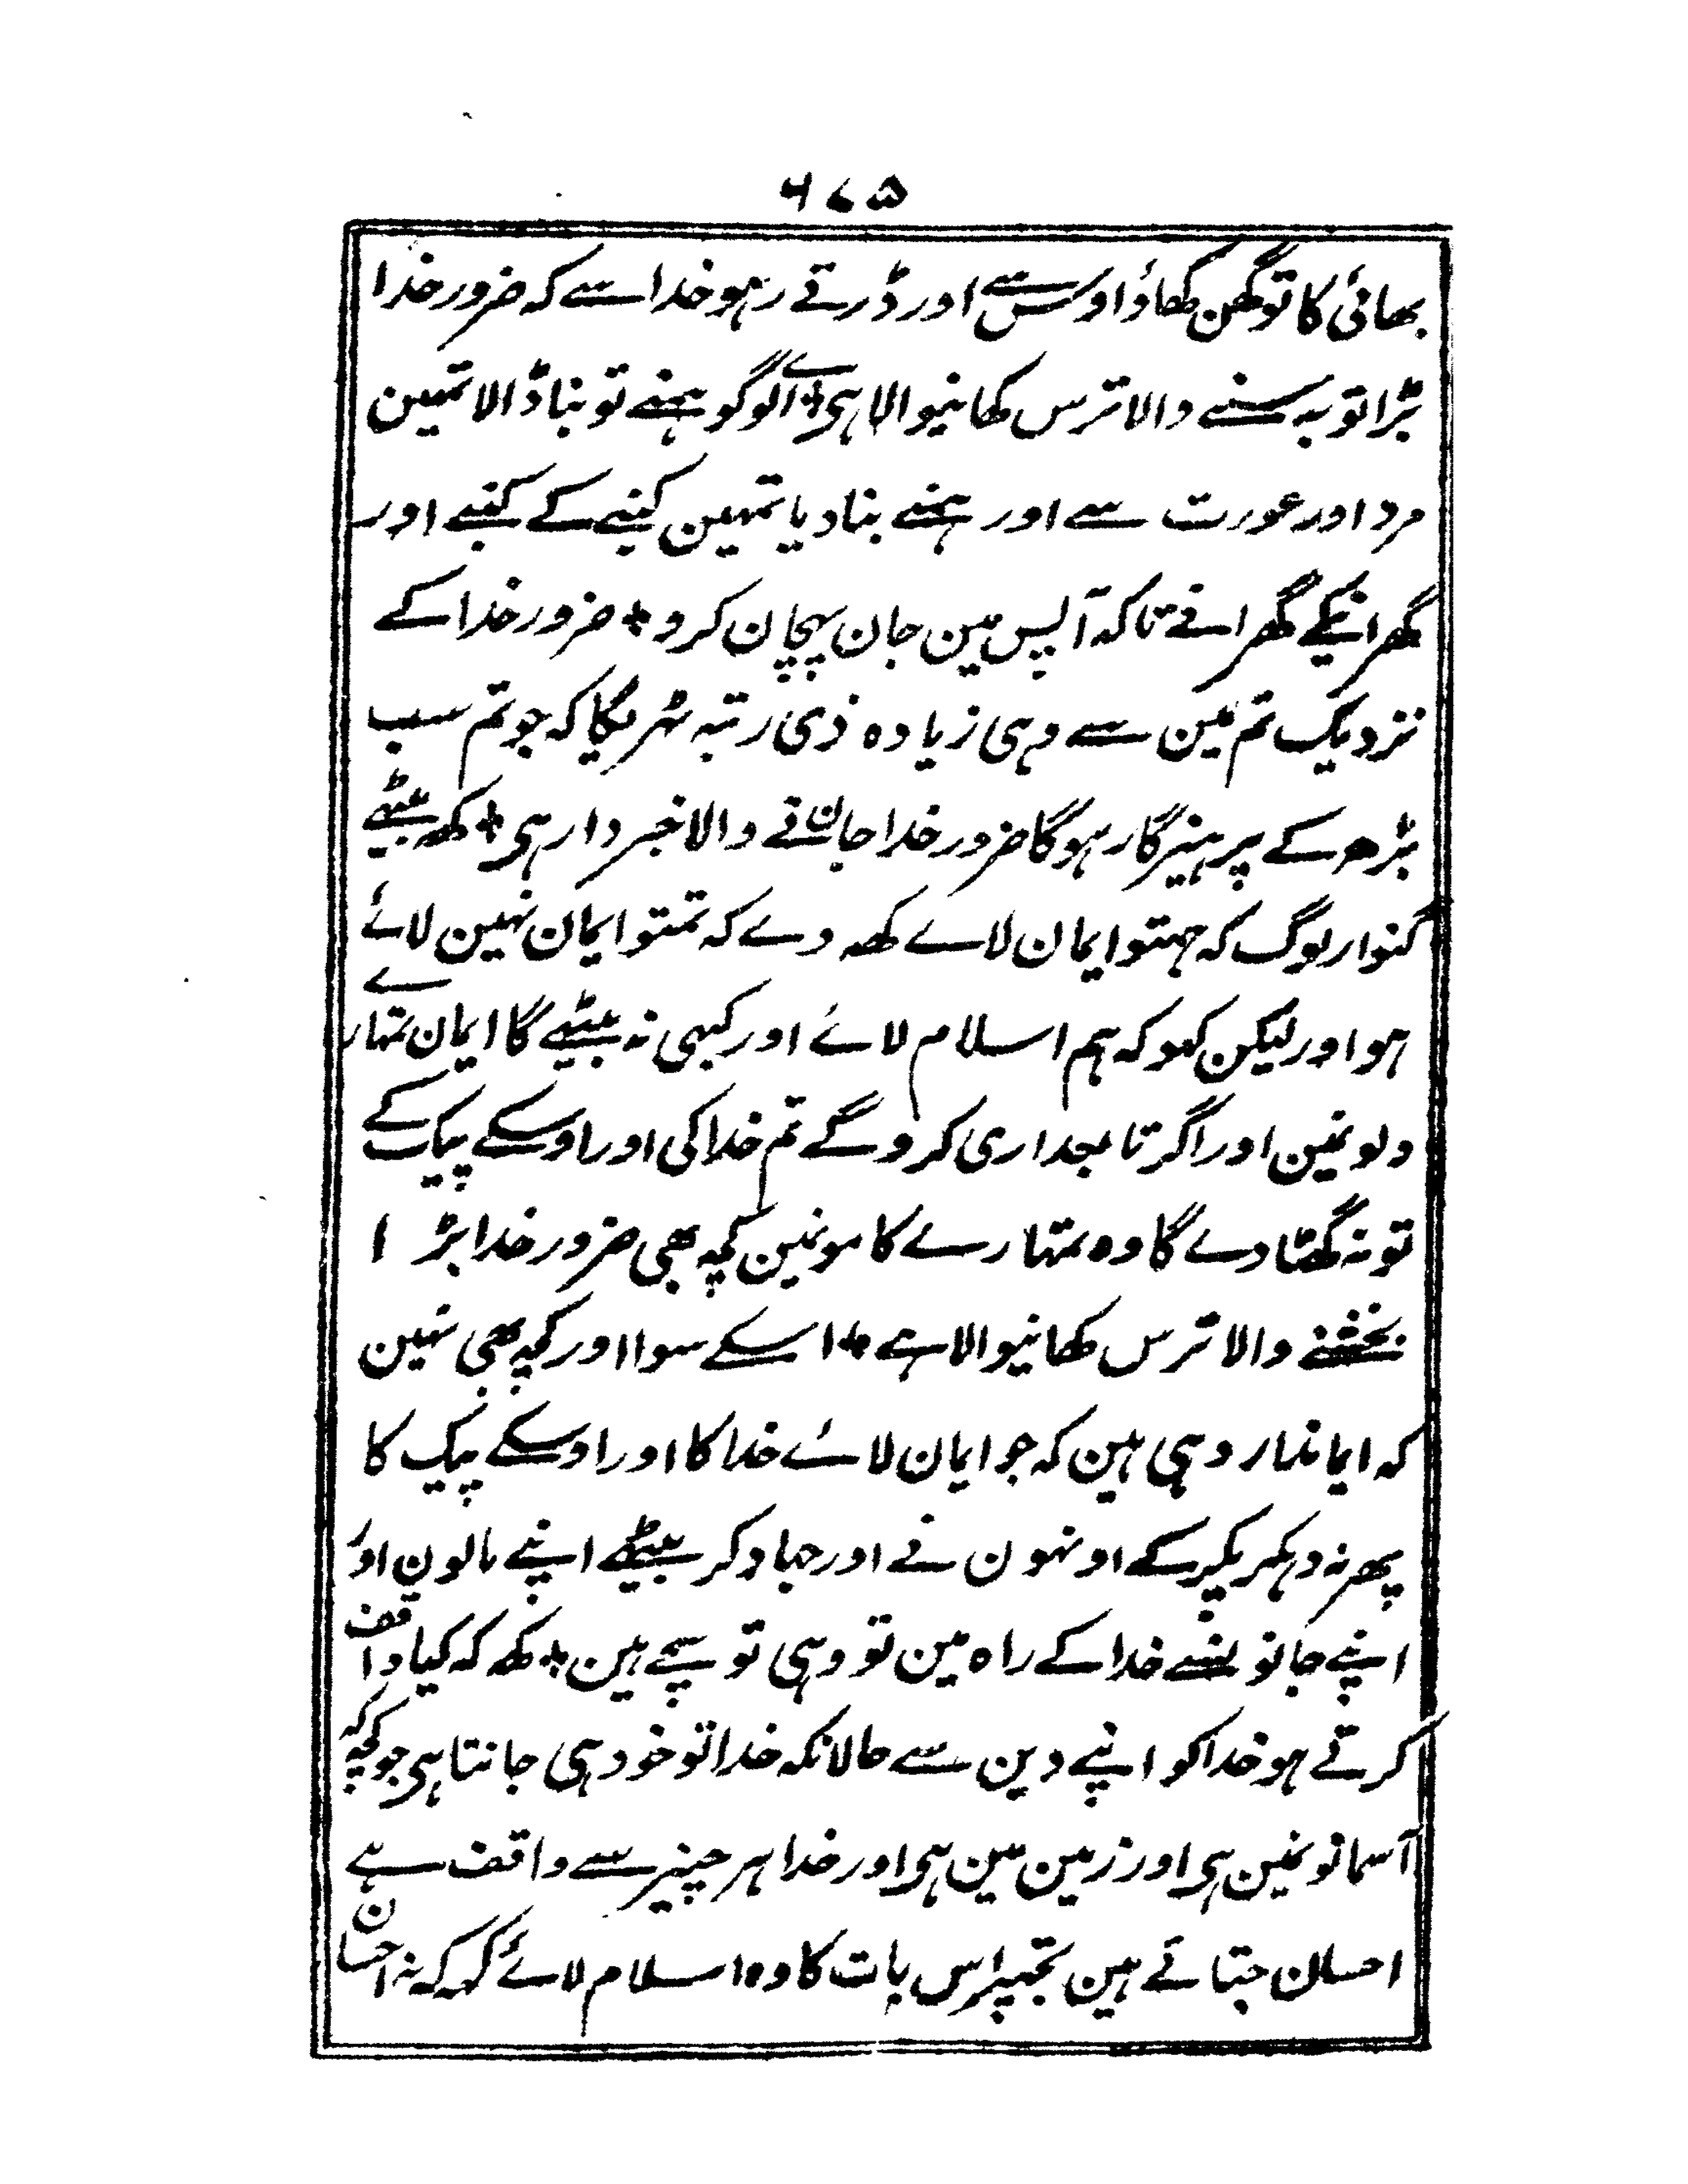 ۶۷۵
بھائی کا تو گھن کھاؤ اوس سے اور ڈرتے رہو خدا سے کہ ضرور خدا
بڑا توبہ سننے والا ترس کھانیوالا ہی + اے لوگو ہمنے تو بنا ڈالا تمھین
مرد اور عورت سے اور ہمنے بنادیا تمہین کنبے کے کنبے اور
گھرانیکے گھرانے تاکہ آپس مین جان پہچان کرو + ضرور خدا کے
نزدیک تم مین سے وہی زیادہ ذی رتبہ ٹہریگا کہ جو تم سب
بڑھ کے پرہیزگار ہوگا ضرور خدا جاننے والا خبردار ہی + کھہ بیٹھے
گنوار لوگ کہ ہمتو ایمان لاے کھہ دے کہ تمتو ایمان نہین لائے
ہو اور لیکن کہو کہ ہم اسلام لائے اور کبہی نہ بیٹھے گا ایمان تمہارے
دلونمین اور اگر تابعداری کروگے تم خدا کی اور اوسکے پیک کے
تو نہ گھٹا دے گا وہ تمہارے کامونمین کچہ بھی ضرور خدا بڑا
بخشنے والا ترس کھانیوالا ہے + اسکے سوا اور کچہ بھی نہین
کہ ایماندار وہی ہین کہ جو ایمان لائے خدا کا اور اوسکے پیک کا
پھر نہ دہکر پکر کے اونہون نے اور جہاد کر بیٹھے اپنے مالون اور
اپنے جانونسے خدا کے راہ مین تو وہی تو سچے ہین + کھہ کہ کیا واقف
کرتے ہو خدا کو اپنے دین سے حالانکہ خدا تو خود ہی جانتا ہی جو کچہ کہ
آسمانونمین ہی اور زمین مین ہی اور خدا ہر چیز سے واقف ہے
احسان جتاتے ہین تجھپر اس بات کا وہ اسلام لائے کہہ کہ نہ احسان